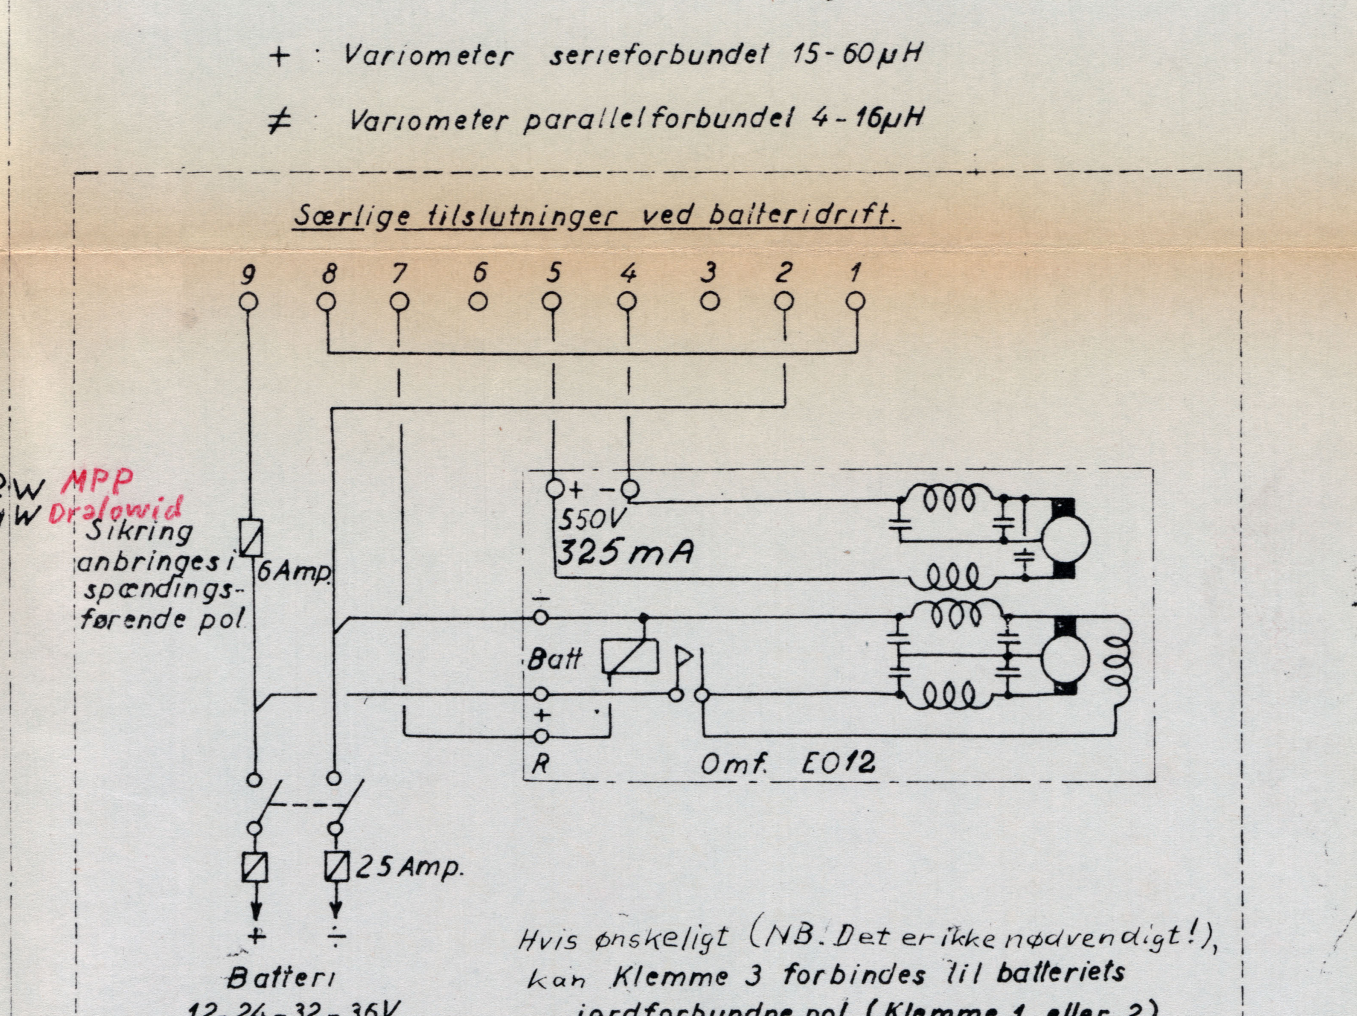 + : Variometer serieforbundet 15-60µH
≠ : Variometer parallelforbundet 4-16µH
Særlige tilslutninger ved batteridrift.
9 8 7 6 5 4 3 2 1
W MPP
W Dralowid
Sikring
anbringes i
spændings-
førende pol
6 Amp.
+ -
550V
325mA
-
Batt
+
R
Omf. EO12
25 Amp.
+ ÷
Batteri
12-24-32-36V
Hvis ønskeligt (NB. Det er ikke nødvendigt!),
kan Klemme 3 forbindes til batteriets
jordforbundne pol (Klemme 1 eller 2)